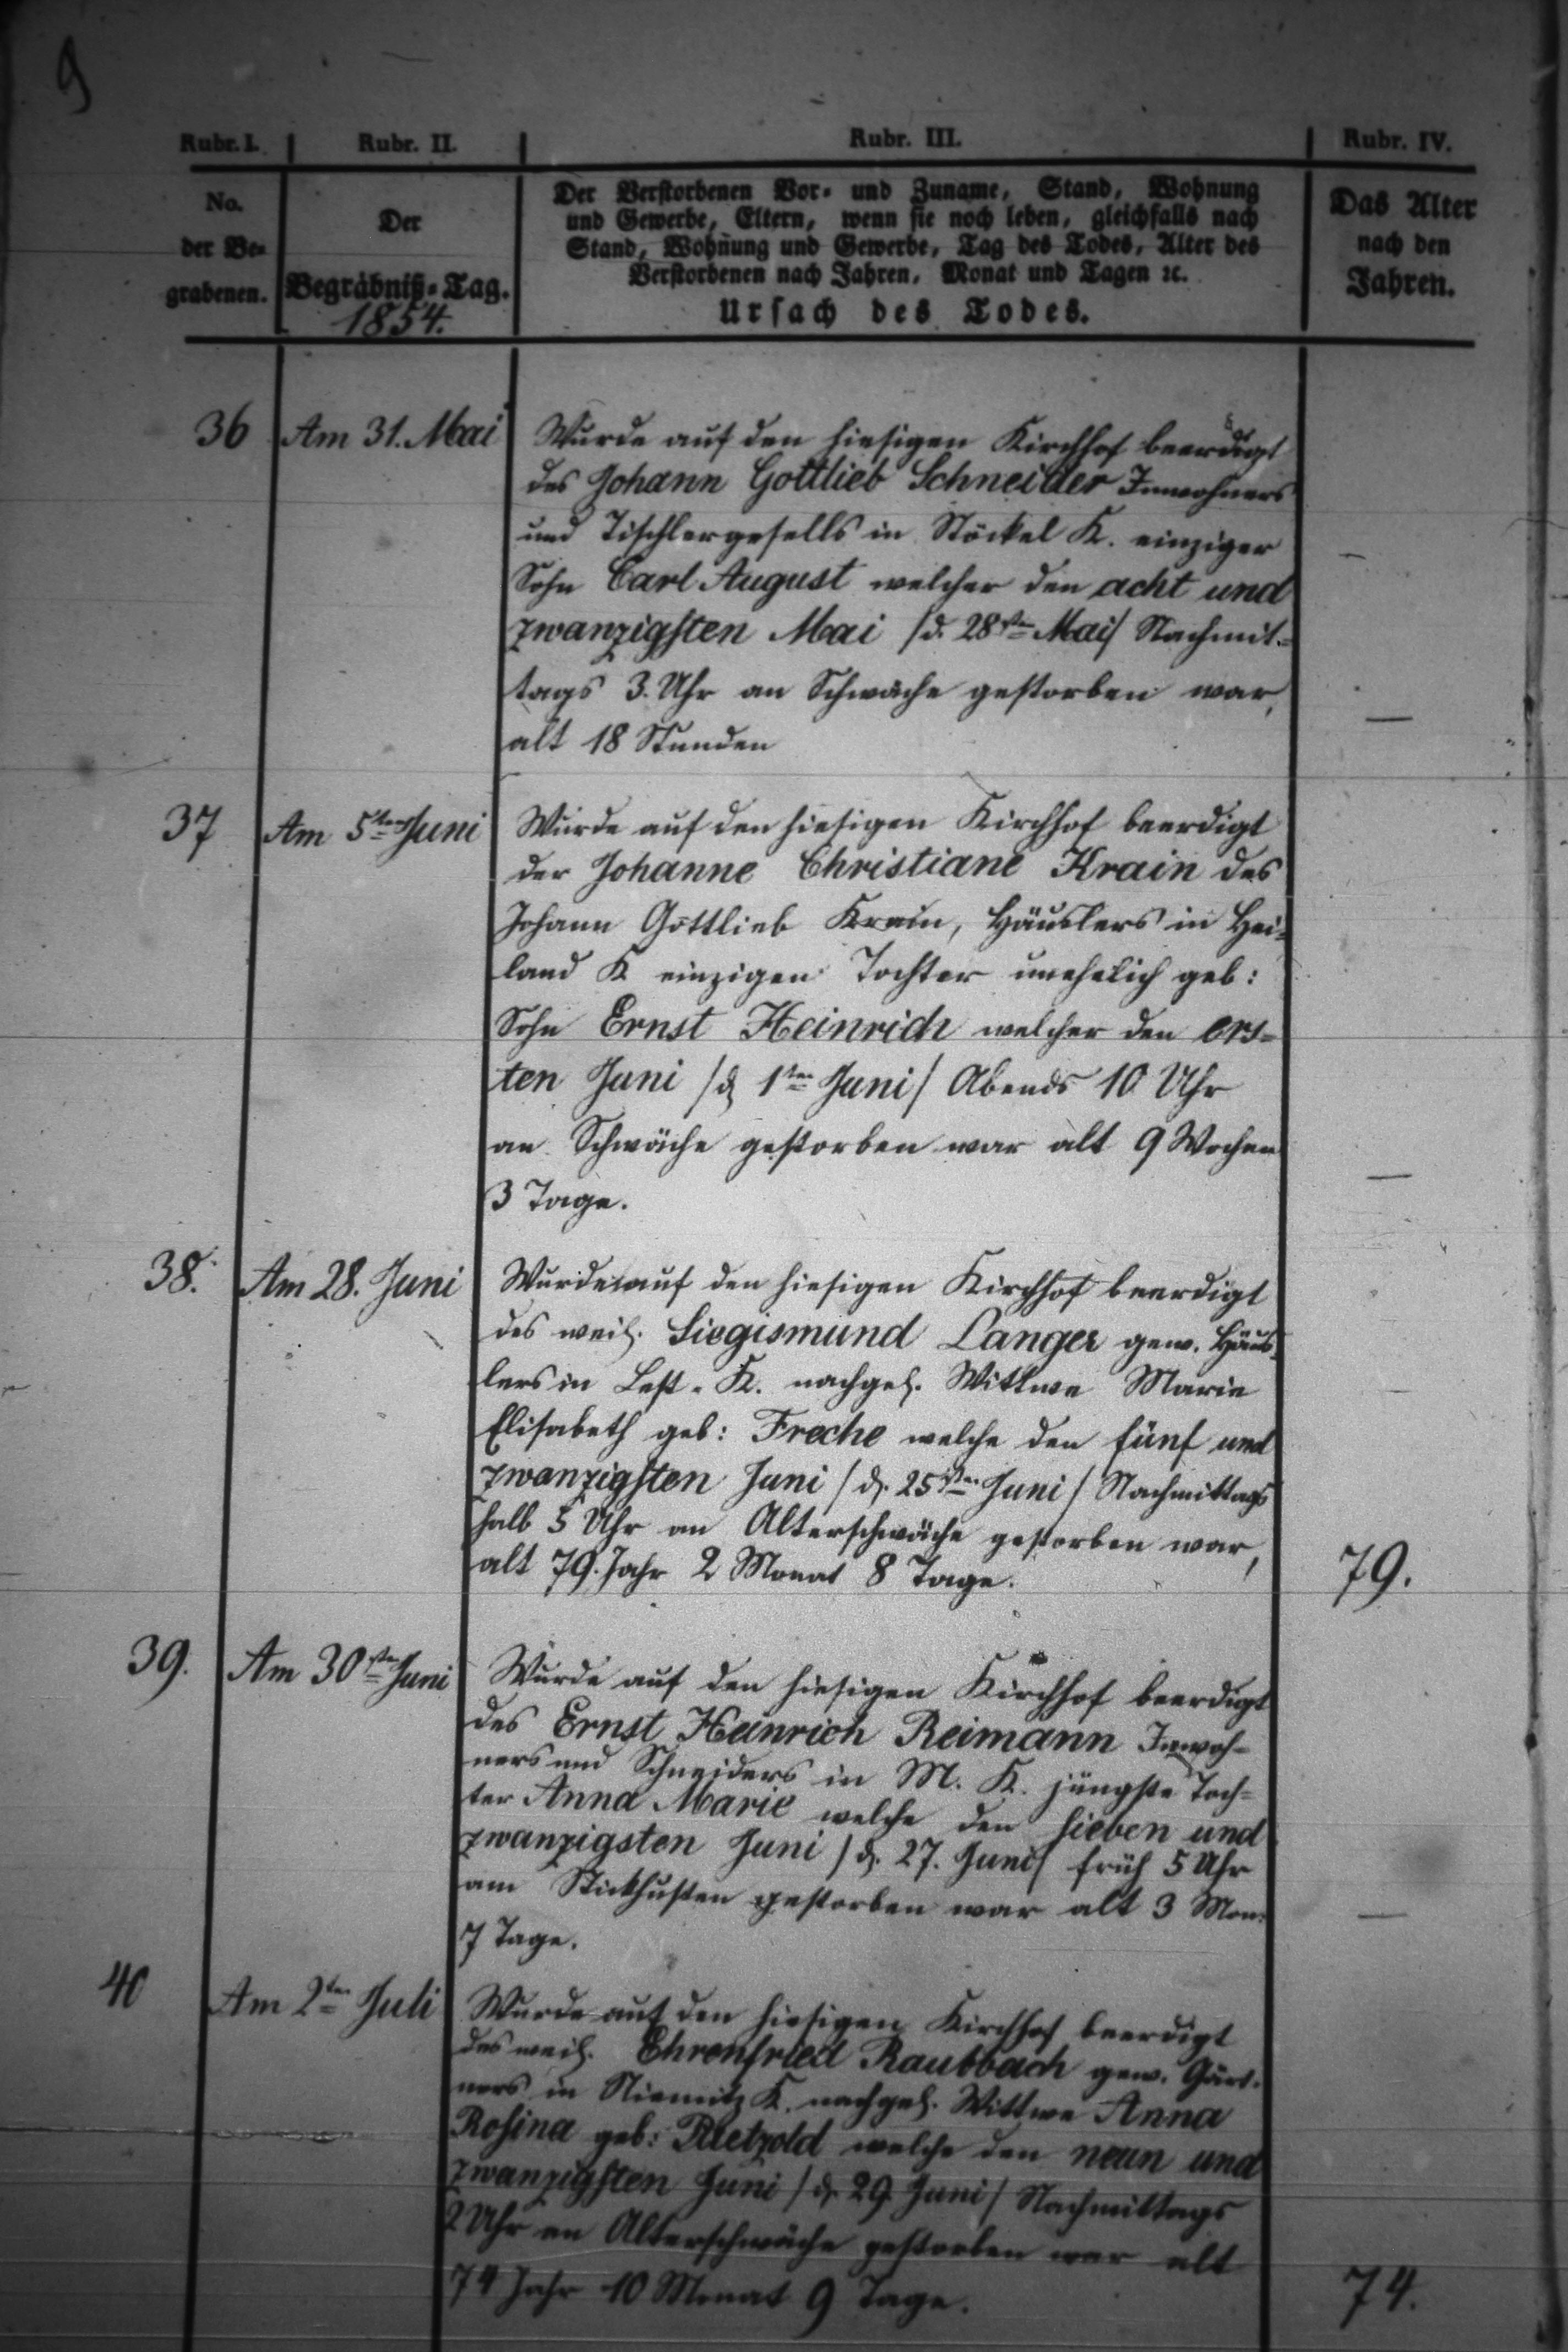 9
Rubr. I. Rubr. II. Rubr. III. Rubr. IV.
No. der Be= grabenen.
Der Begräbniß=Tag. 1854.
Der Verstorbenen Vor= und Zuname, Stand, Wohnung
und Gewerbe, Eltern, wenn sie noch leben, gleichfalls nach
Stand, Wohnung und Gewerbe, Tag des Todes, Alter des
Verstorbenen nach Jahren, Monat und Tagen ꝛc.
Ursach des Todes.
Das Alter
nach den
Jahren.
36 Am 31. Mai Wurde auf den hiesigen Kirchhof beerdigt
des Johann Gottlieb Schneider Inwohners
und Tischlergesells in Stöckel K. einziger
Sohn Carl August welcher den acht und
zwanzigsten Mai /d. 28sten Mai/ Nachmit=
tags 3. Uhr an Schwäche gestorben war,
alt 18 Stunden —
37 Am 5ten Juni Wurde auf den hiesigen Kirchhof beerdigt
der Johanne Christiane Krain des
Johann Gottlieb Krain, Häuslers in Hei=
land K einzigen Tochter unehelich geb:
Sohn Ernst Heinrich welcher den ers=
ten Juni /d 1ten Juni/ Abends 10 Uhr
an Schwäche gestorben war alt 9 Wochen
3 Tage. —
38. Am 28. Juni Wurde auf den hiesigen Kirchhof beerdigt
des weil. Siegismund Langer gew. Häus=
lers in Lest. K. nachgel. Wittwe Marie
Elisabeth geb: Freche welche den fünf und
zwanzigsten Juni /d. 25sten Juni/ Nachmittags
halb 5 Uhr an Alterschwäche gestorben war,
alt 79. Jahr 2 Monat 8 Tage. 79.
39. Am 30sten Juni Wurde auf den hiesigen Kirchhof beerdigt
des Ernst Heinrich Reimann Inwoh=
ners und Schneiders in M. K. jüngste Toch=
ter Anna Marie welche den sieben und
zwanzigsten Juni /d. 27. Juni/ früh 5 Uhr
am Stickhusten gestorben war alt 3 Mon:
7 Tage. —
40 Am 2ten Juli Wurde auf den hiesigen Kirchhof beerdigt
des weil. Ehrenfried Raubbach gew. Gärt=
ners in Niemitz K. nachgel. Wittwe Anna
Rosina geb: Rietzold welche den neun und
zwanzigsten Juni /d. 29 Juni/ Nachmittags
2 Uhr an Alterschwäche gestorben war alt
74 Jahr 10 Monat 9 Tage. 74.